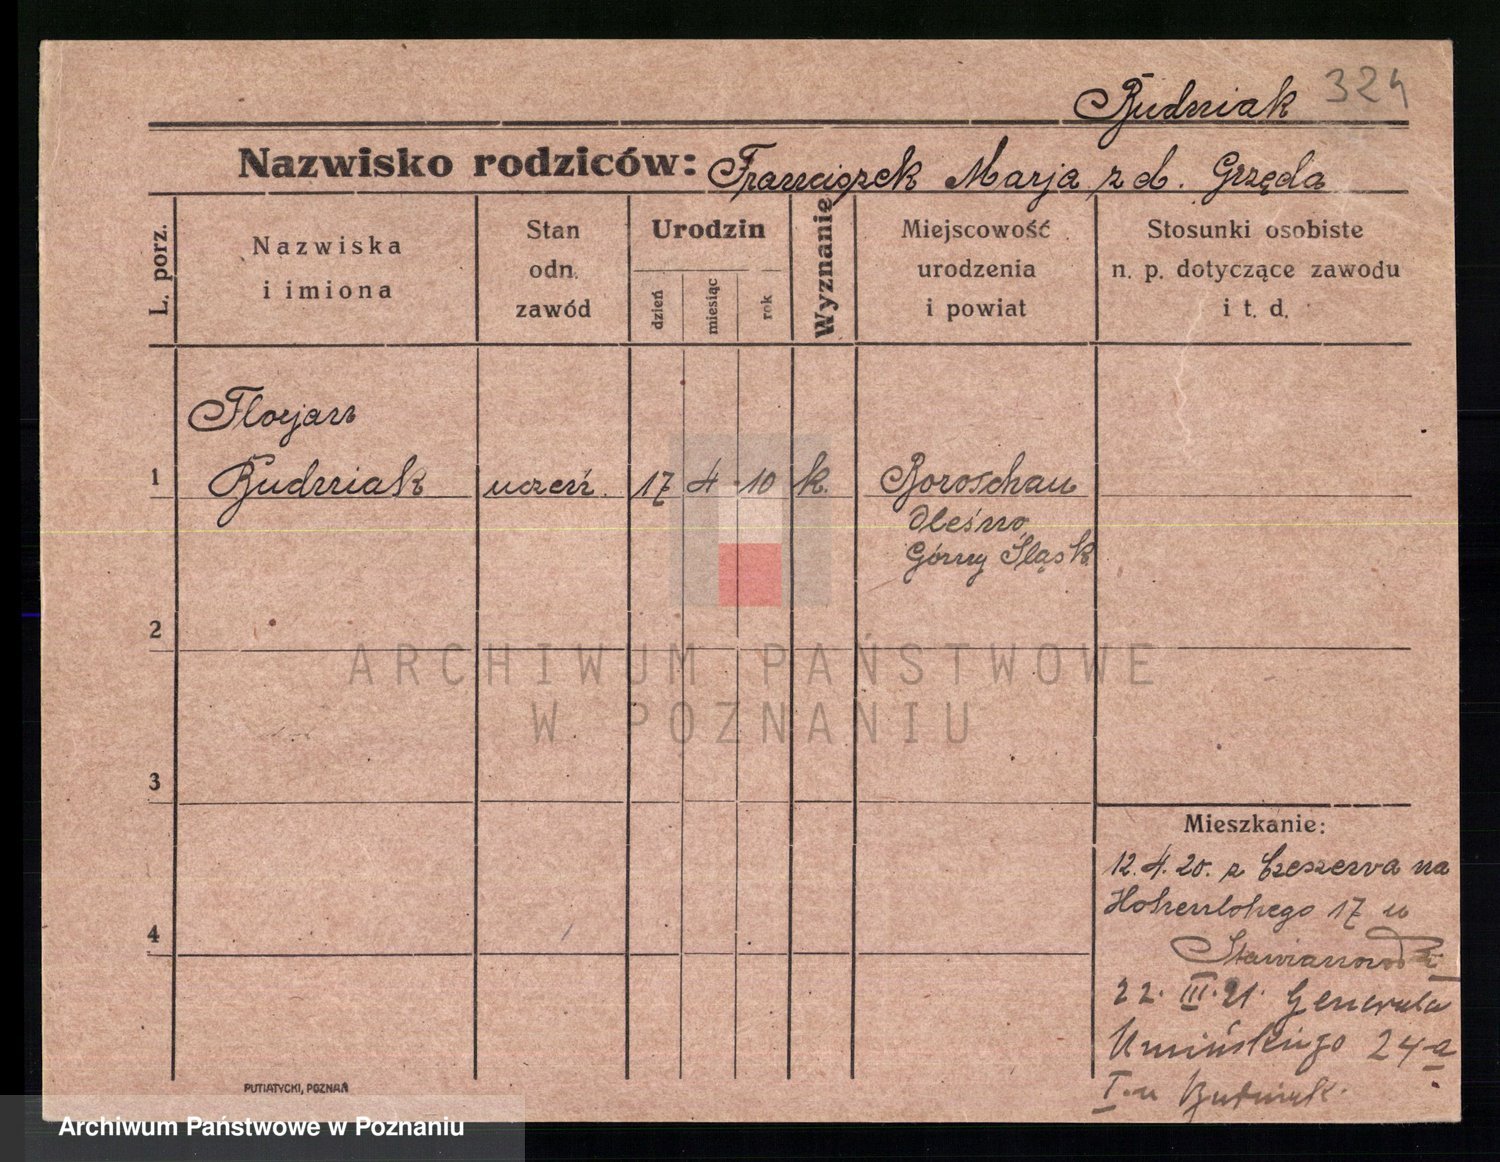 Budniak 324
Nazwisko rodziców: Franciszek Marja z d. Grzęda
L. porz.
Nazwiska
i imiona
Stan
odn.
zawód
Urodzin
dzień
miesiąc
rok
Wyznanie
Miejscowość
urodzenia
i powiat
Stosunki osobiste
n. p. dotyczące zawodu
i t. d.
Florjan
1 Budniak uczeń. 17 4 10 k. Boroschau
Oleśno,
Górny Śląsk
2
3
4
ARCHIWUM PAŃSTWOWE
W POZNANIU
Mieszkanie:
12.4.20. z Czeszewa na
Hohenlohego 17 u
22. III. 21. Generała
Umińskiego 24a
I. u Budniak.
PUTIATYCKI, POZNAŃ
Archiwum Państwowe w Poznaniu